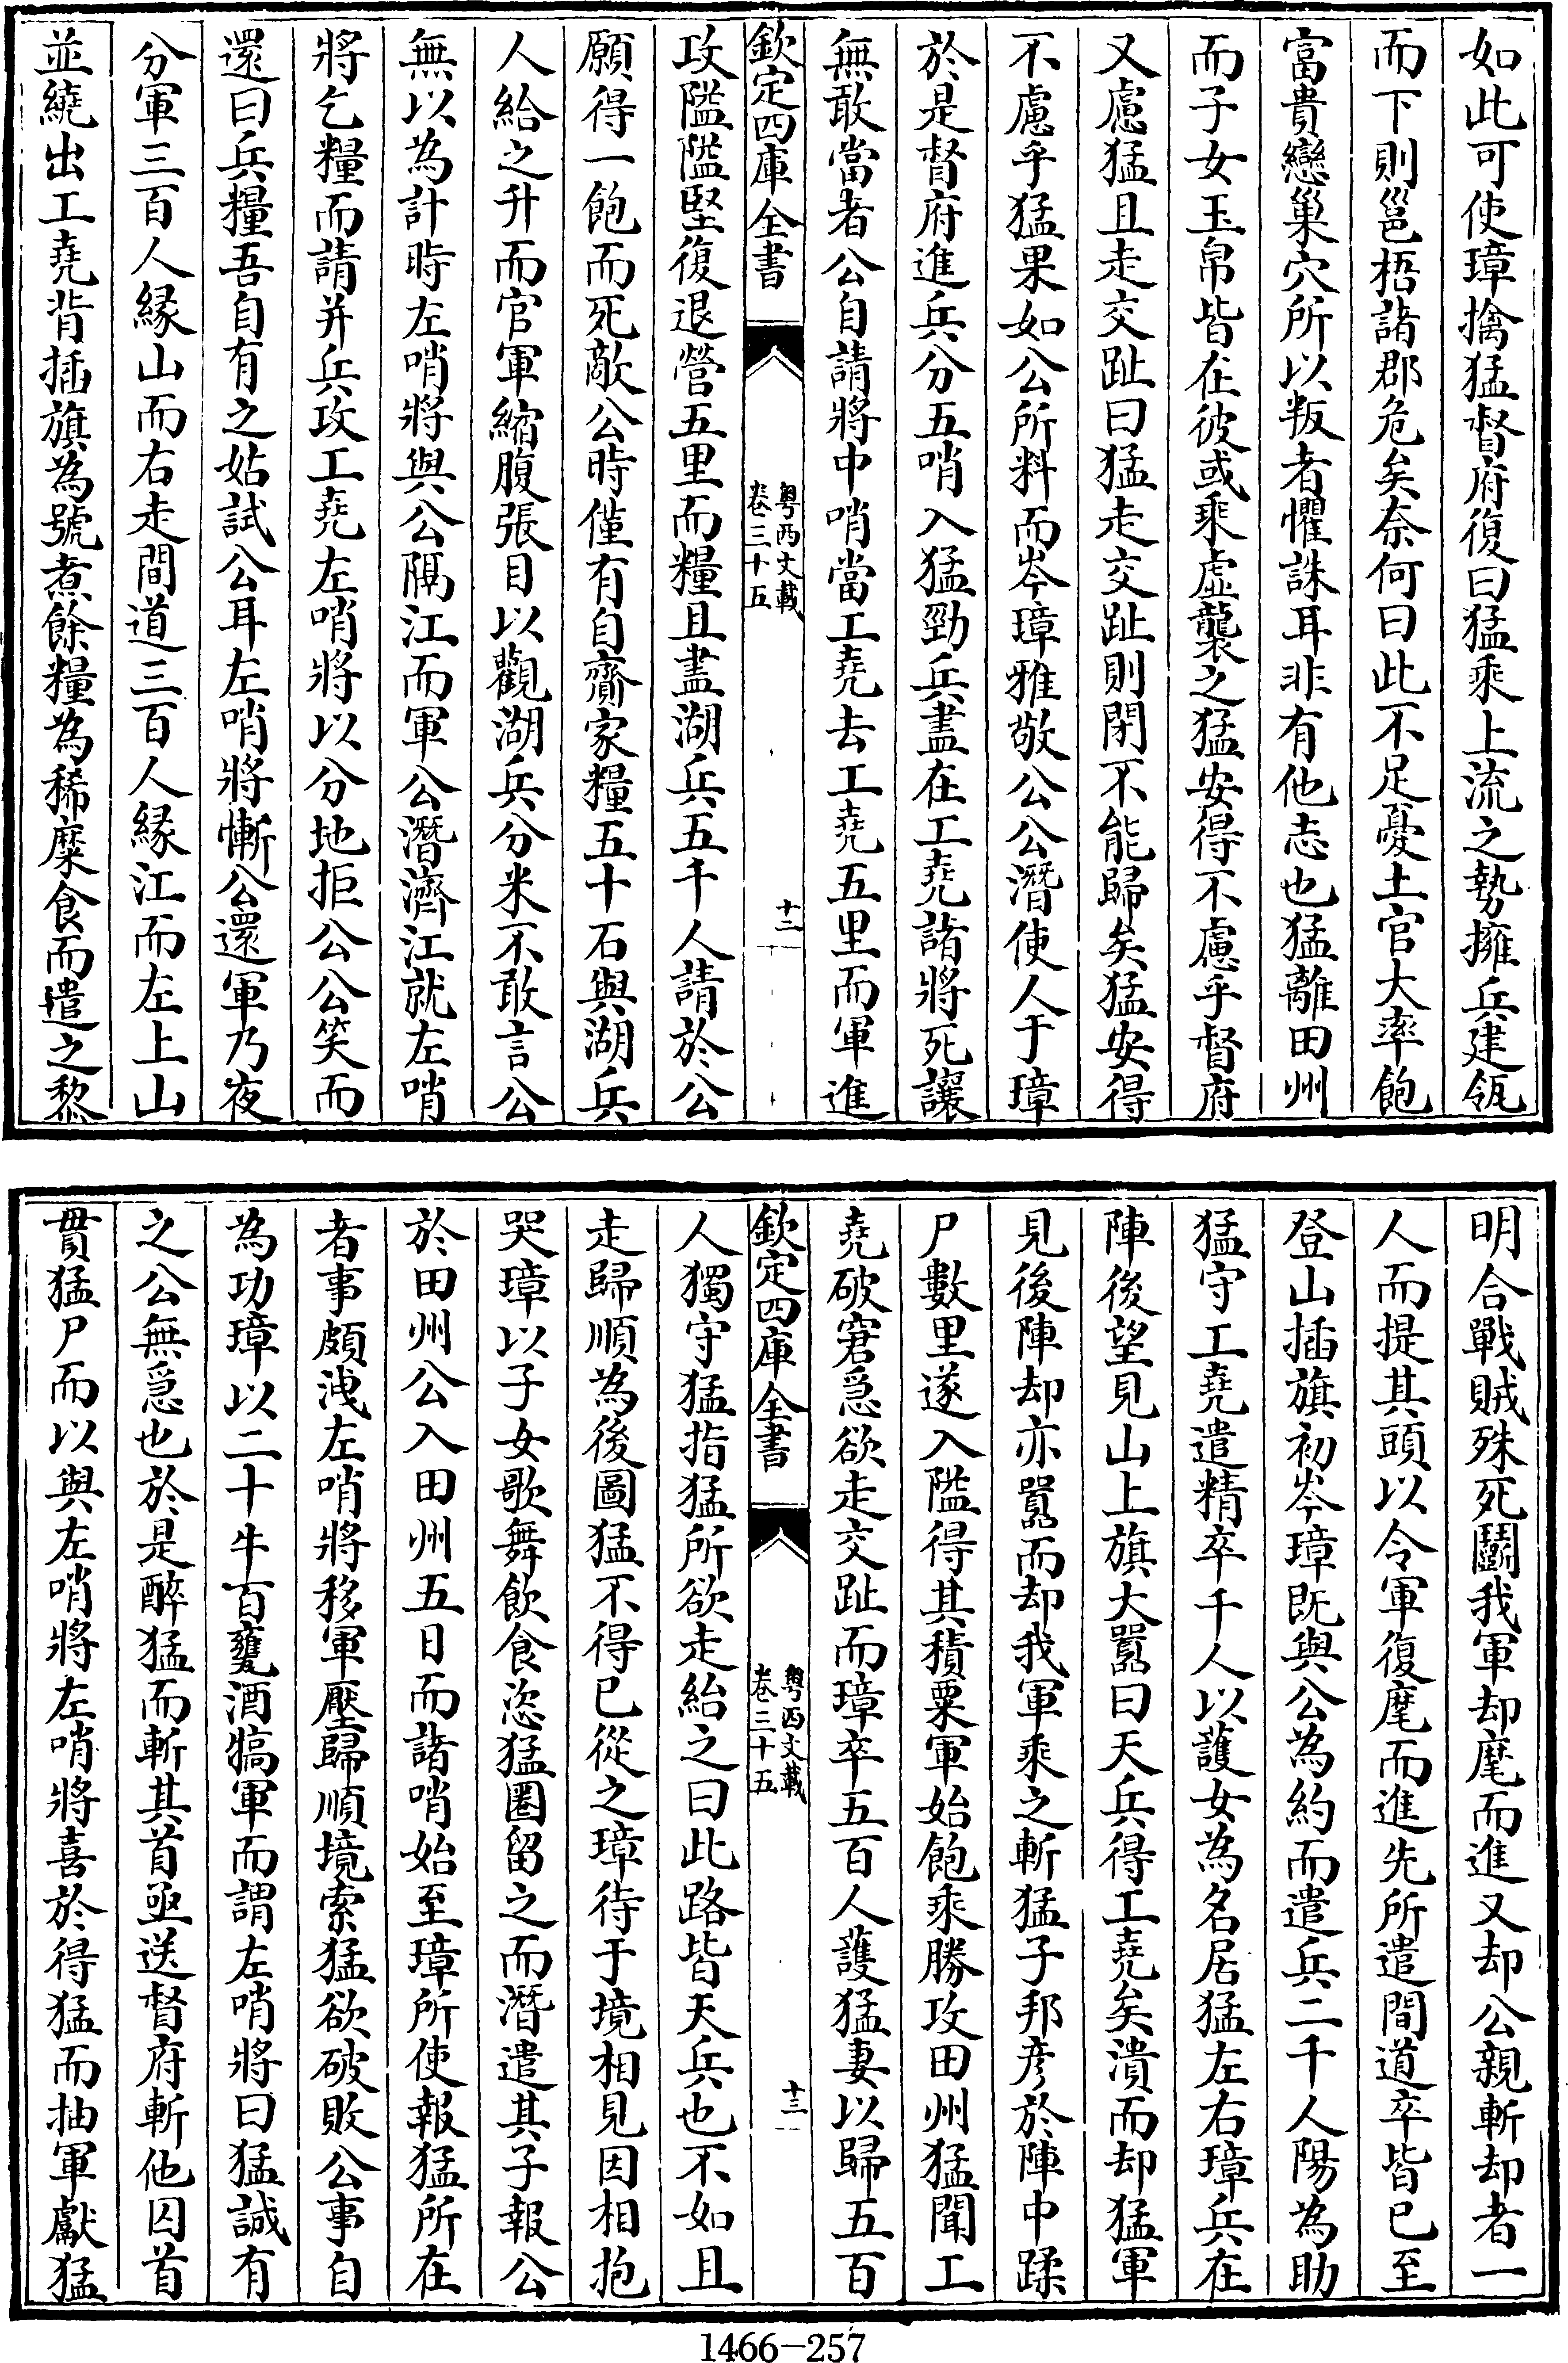 如此可使璋擒猛督府復曰猛乘上流之勢擁兵建瓴
而下則邕梧諸郡危矣奈何曰此不足憂土官大率飽
富貴戀巢穴所以叛者懼誅耳非有他志也猛離田州
而子女玉帛皆在彼或乘虛襲之猛安得不慮乎督府
又慮猛且走交趾曰猛走交趾則閉不能歸矣猛安得
不慮乎猛果如公所料而岑璋雅敬公公潛使人于璋
於是督府進兵分五哨入猛勁兵盡在工堯諸將死讓
無敢當者公自請將中哨當工堯去工堯五里而軍進
欽定四庫全書
粵西文載
卷三十五
十二
攻隘隘堅復退營五里而糧且盡湖兵五千人請於公
願得一飽而死敵公時僅有自齎家糧五十石與湖兵
人給之升而官軍縮腹張目以觀湖兵分米不敢言公
無以為計時左哨將與公隔江而軍公潛濟江就左哨
將乞糧而請并兵攻工堯左哨將以分地拒公公笑而
還曰兵糧吾自有之姑試公耳左哨將慚公還軍乃夜
分軍三百人緣山而右走間道三百人緣江而左上山
並繞出工堯背插旗為號煮餘糧為稀糜食而遣之黎
明合戰賊殊死鬬我軍却麾而進又却公親斬却者一
人而提其頭以令軍復麾而進先所遣間道卒皆已至
登山插旗初岑璋既與公為約而遣兵二千人陽為助
猛守工堯遣精卒千人以護女為名居猛左右璋兵在
陣後望見山上旗大嚣曰天兵得工堯矣潰而却猛軍
見後陣却亦嚣而却我軍乘之斬猛子邦彦於陣中蹂
尸數里遂入隘得其積粟軍始飽乘勝攻田州猛聞工
堯破窘急欲走交趾而璋卒五百人護猛妻以歸五百
欽定四庫全書
粵西文載
卷三十五
十三
人獨守猛指猛所欲走紿之曰此路皆天兵也不如且
走歸順為後圖猛不得已從之璋待于境相見因相抱
哭璋以子女歌舞飲食恣猛圈留之而潛遣其子報公
於田州公入田州五日而諸哨始至璋所使報猛所在
者事頗洩左哨將移軍壓歸順境索猛欲破敗公事自
為功璋以二十牛百甕酒犒軍而謂左哨將曰猛誠有
之公無急也於是醉猛而斬其首亟送督府斬他囚首
貫猛尸而以與左哨將左哨將喜於得猛而抽軍獻猛
1466-257